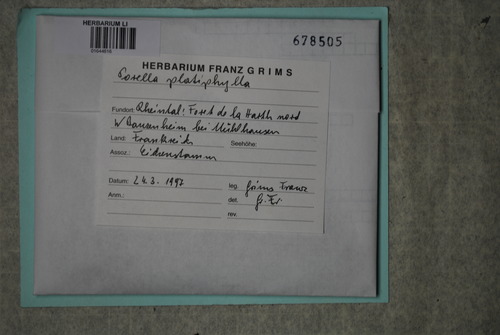 HERBARIUM LI
678505
HERBARIUM FRANZ GRIMS
Porella platiphylla
Fundort: Rheintal: Foret de la Harth nord
W Banzenheim bei Mühlhausen
Land: Frankreich Seehöhe:
Assoz.: Eichenstamm
Datum: 24.3.1997 leg. Grims Franz
Anm.: det. Gr. Fr.
rev.